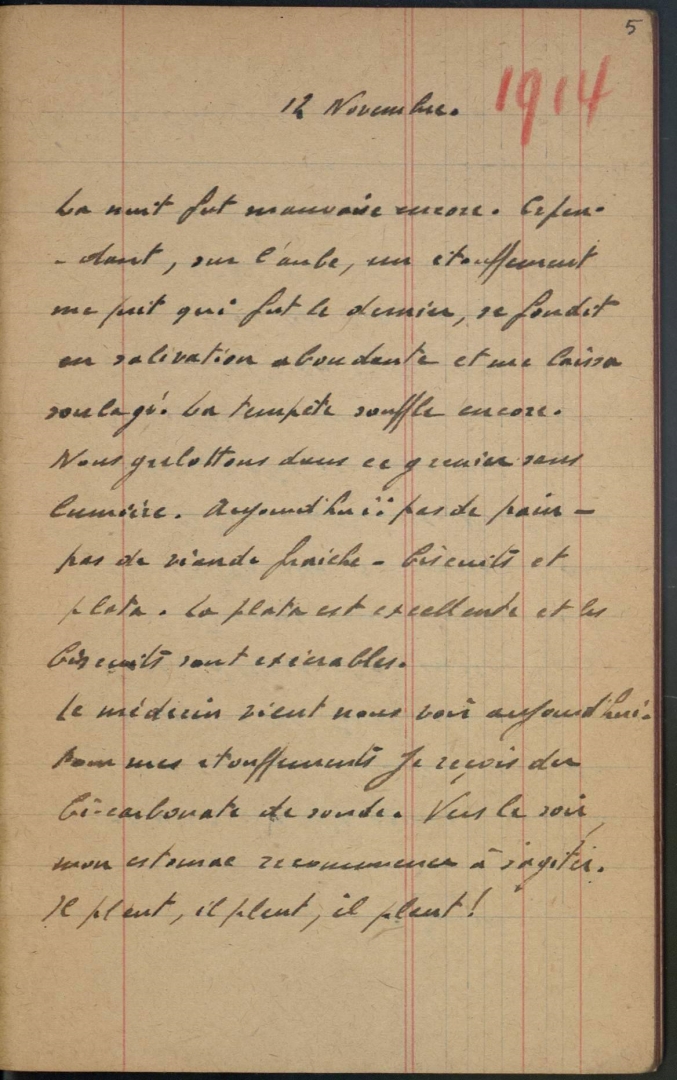 5
12 Novembre.
1914
La nuit fut mauvaise encore. Cepen-
- dant, sur l'aube, un étouffement
me prit qui fut le dernier, se fondit
en salivation abondante et me laissa
soulagé. La tempête souffle encore.
Nous grelottons dans ce grenier sans
lumière. Aujourd'hui pas de pain -
pas de viande fraiche - biscuits et
plata. La plata est excellente et les
biscuits sont exécrables.
Le médecin vient nous voir aujourd'hui.
Pour mes étouffements je reçois du
bi-carbonate de soude. Vers le soir,
mon estomac recommence à s'agiter.
Il pleut, il pleut, il pleut!